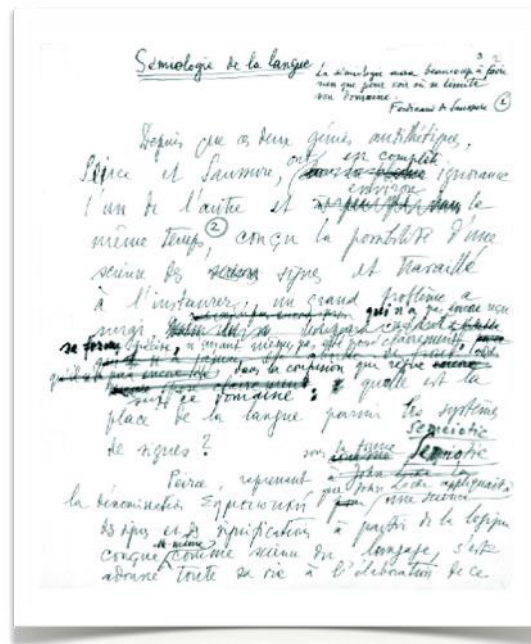 3 2
Sémiologie de la langue
La sémiologie aura beaucoup à faire
rien que pour voir où se limite
son domaine.
Ferdinand de Saussure ①
Depuis que ces deux génies antithétiques,
Peirce et Saussure, ont en complète ignorance
l'un de l'autre et environ le
même temps ②, conçu la possibilité d'une
science des signes et travaillé
à l'instaurer, un grand problème a
surgi, qui n'a pas encore reçu
sa forme
dans la confusion qui règne
sur ce domaine : quelle est la
place de la langue parmi les systèmes
de signes ?
semeiotic
Peirce, reprenant sous la forme Semiotic
la dénomination Σημειωτική que John Locke appliquait
à une science
des signes et des significations à partir de la logique
conçue elle-même comme science du langage, s'est
adonné toute sa vie à l'élaboration de ce